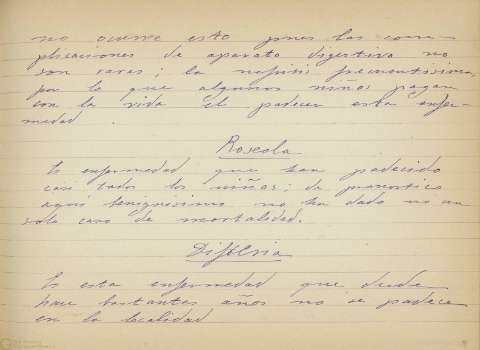 no ocurre esto pues las com-
plicaciones de aparato digestivo no
son raras; la nefritis frecuentisima,
por lo que algunos niños pagan
con la vida el padecer esta enfer-
medad
Roseola
Es enfermedad que han padecido
casi todos los niños; de pronostico
aqui benignisimo no ha dado ni un
solo caso de mortalidad.
Difteria
Es esta enfermedad que desde
hace bastantes años no se padece
en la localidad